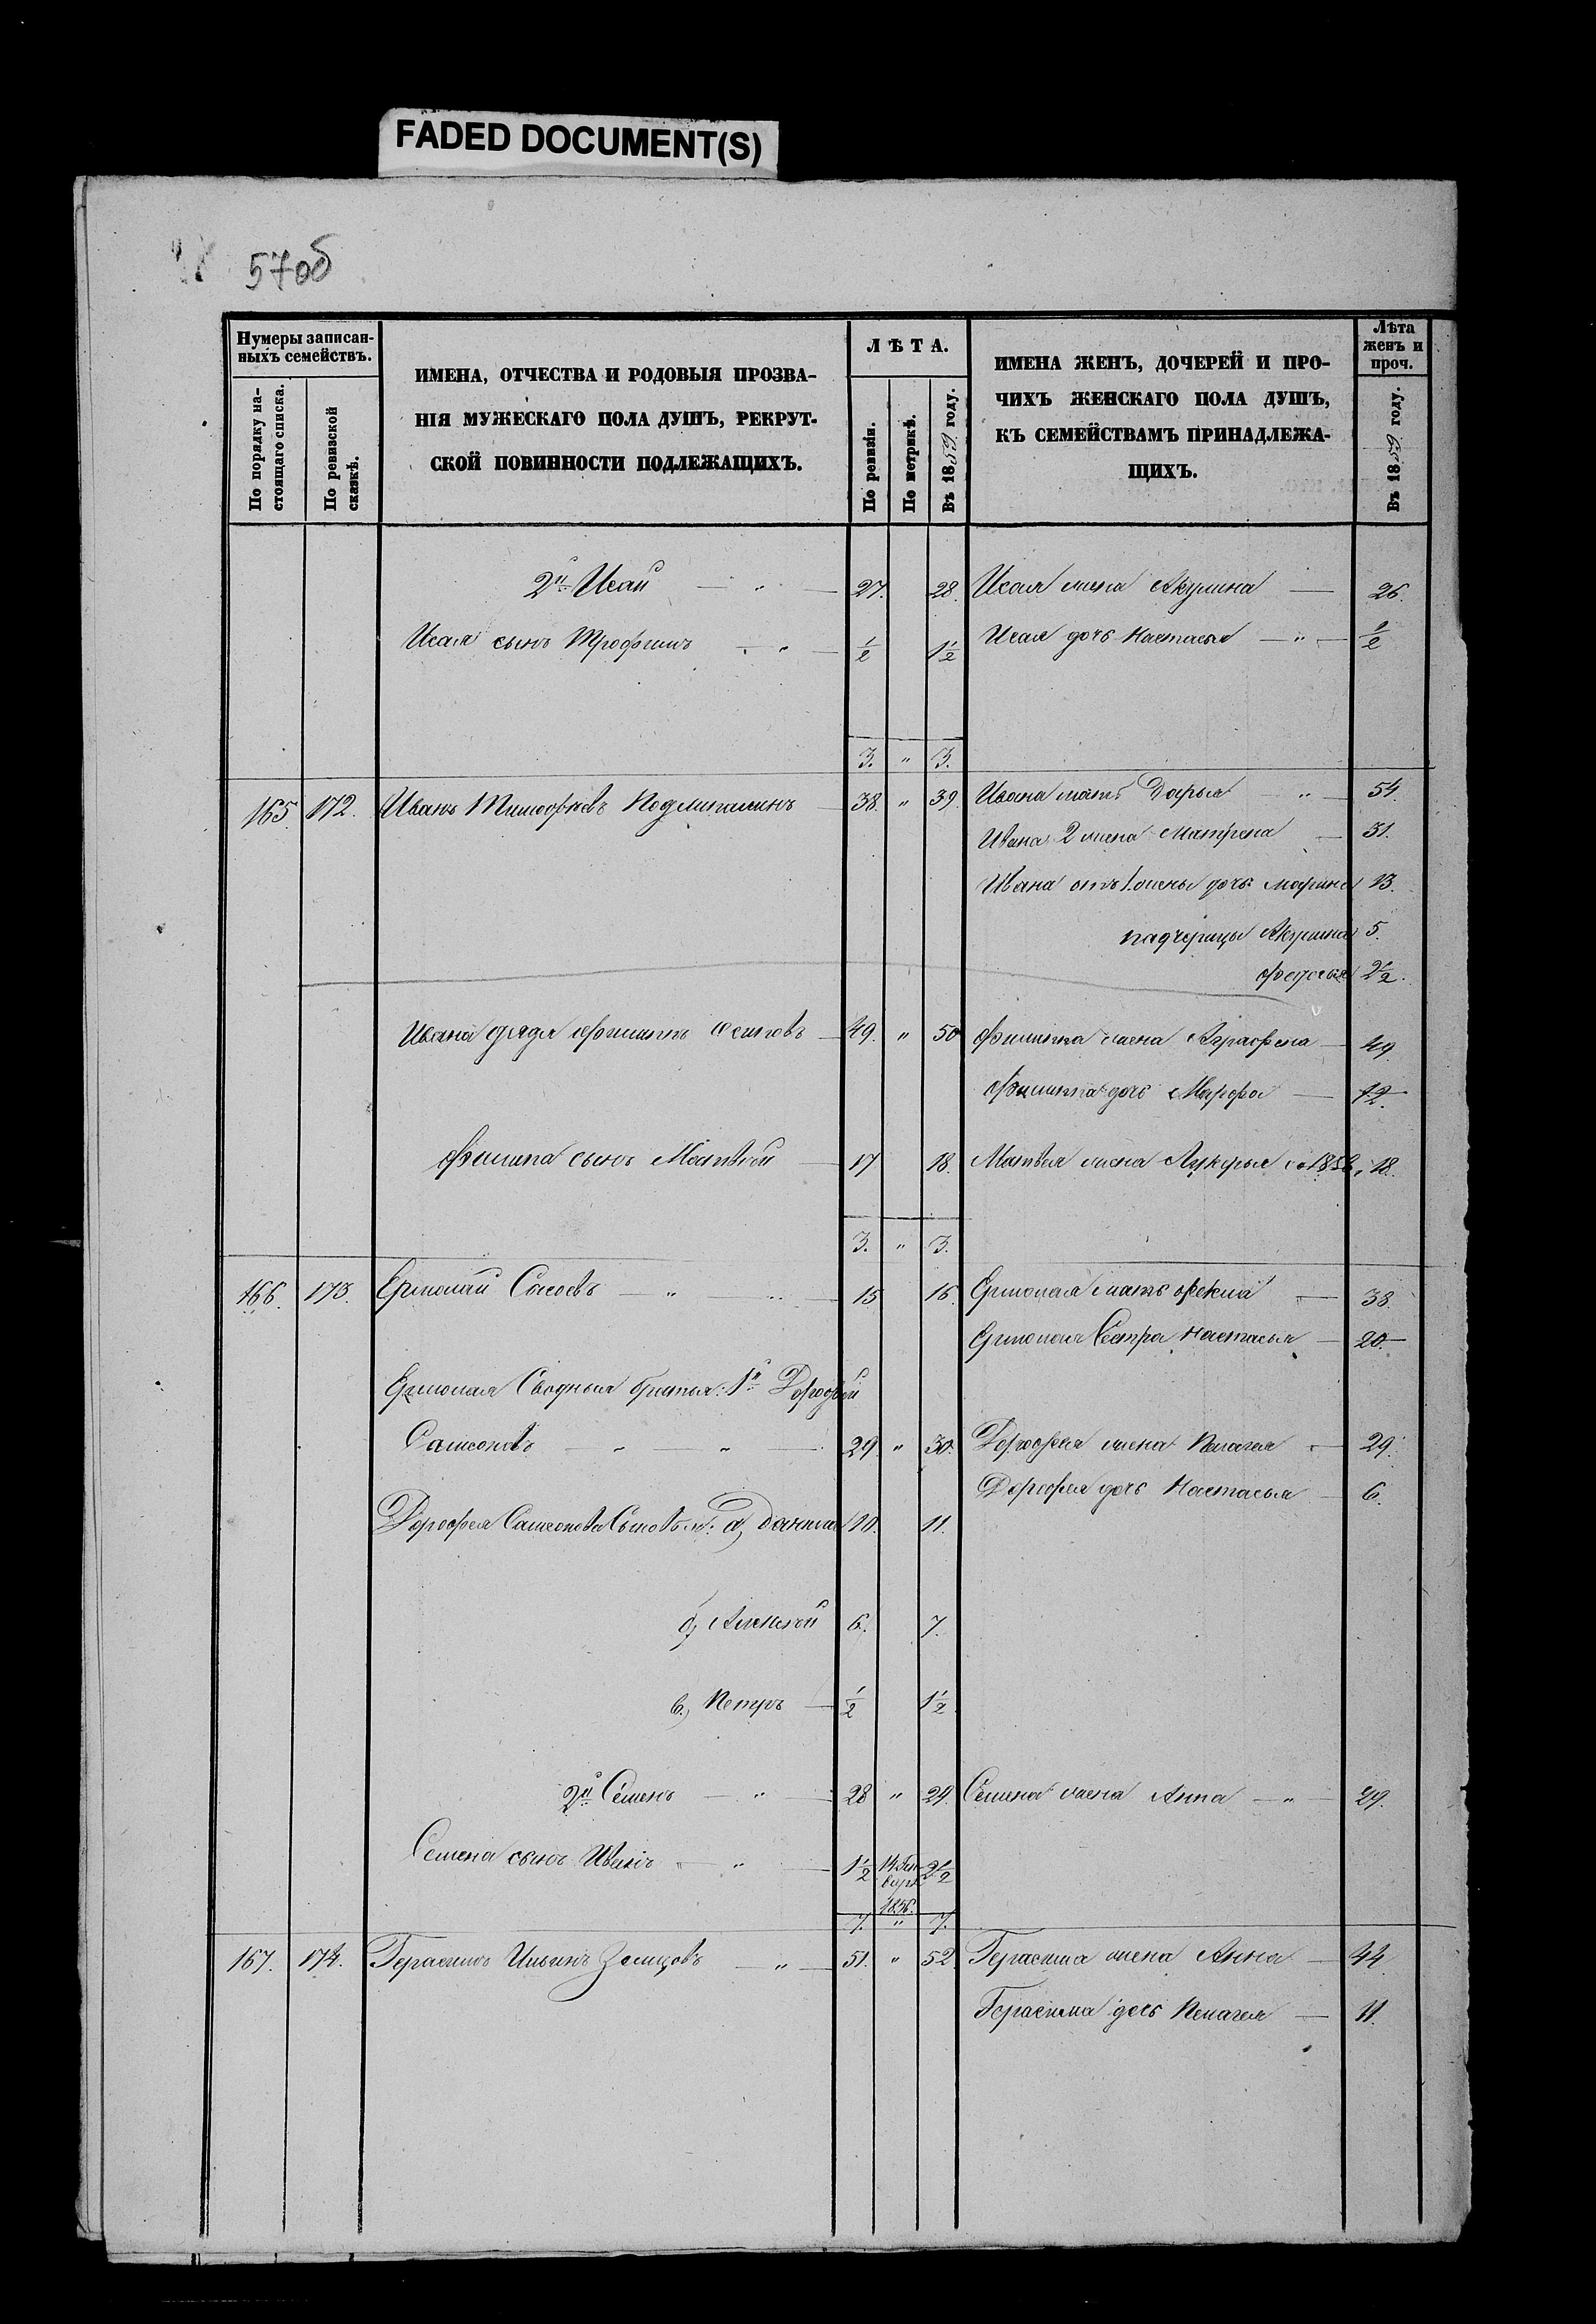 FADED DOCUMENT(S)
57об
Нумеры записан-
ныхъ семействъ.
По порядку на-
стоящаго списка.
По ревизской
сказкѣ.
ИМЕНА, ОТЧЕСТВА И РОДОВЫЯ ПРОЗВА-
НІЯ МУЖЕСКАГО ПОЛА ДУШЪ, РЕКРУТ-
СКОЙ ПОВИННОСТИ ПОДЛЕЖАЩИХЪ.
ЛѢТА.
По ревизіи.
По метрикѣ.
Въ 1859 году.
ИМЕНА ЖЕНЪ, ДОЧЕРЕЙ И ПРО-
ЧИХЪ ЖЕНСКАГО ПОЛА ДУШЪ,
КЪ СЕМЕЙСТВАМЪ ПРИНАДЛЕЖА-
ЩИХЪ.
Лѣта
женъ и
проч.
Въ 1859 году.
2й Исай — " — 27. 28. Исая жена Акулина — 26.
Исая сынъ Трофимъ — " — 1/2 1 1/2 Исая дочь Настасья — " — 1/2
3. " 3.
165. 172. Иванъ Тимофѣевъ — 38. " 39. Ивана мать Дарья " — 54.
Ивана 2 жена Матрена — 31.
Ивана отъ 1 жены дочь Марина 13.
падчерицы Акулина 5.
Федосья 2 1/2.
Ивана дядя Филиппъ Осиповъ — 49. " 50 Филиппа жена Аграфена — 49.
Филиппа дочь Марфа — 12.
Филиппа сынъ Матвѣй — 17 18. Матвѣя жена Лукерья съ 18.
3. " 3.
166. 173. Ермолай Сысоевъ — " — 15 16. Ермолая мать Фекла — 38.
Ермолая Сестра Настасья — 20.
Ермолая Сводныя братья: 1й Дорофей
Самсоновъ — " — " — 29. " 30. Дорофея жена Пелагея — 29.
Дорофея дочь Настасья — 6.
Дорофея Самсонова Сыновья: а) Данила 10. 11.
б) Алексѣй 6. 7.
в) Петръ — 1/2 1 1/2
2й Семенъ — " — 28 " 29. Семена жена Анна — " — 29.
Семена сынъ Иванъ — " — 1 1/2 14 Ген-
варя
1856. 2 1/2
7. " 7.
167. 174. Герасимъ Ильинъ — " — 51. " 52 Герасима жена Анна — 44
Герасима дочь Пелагея — 11.